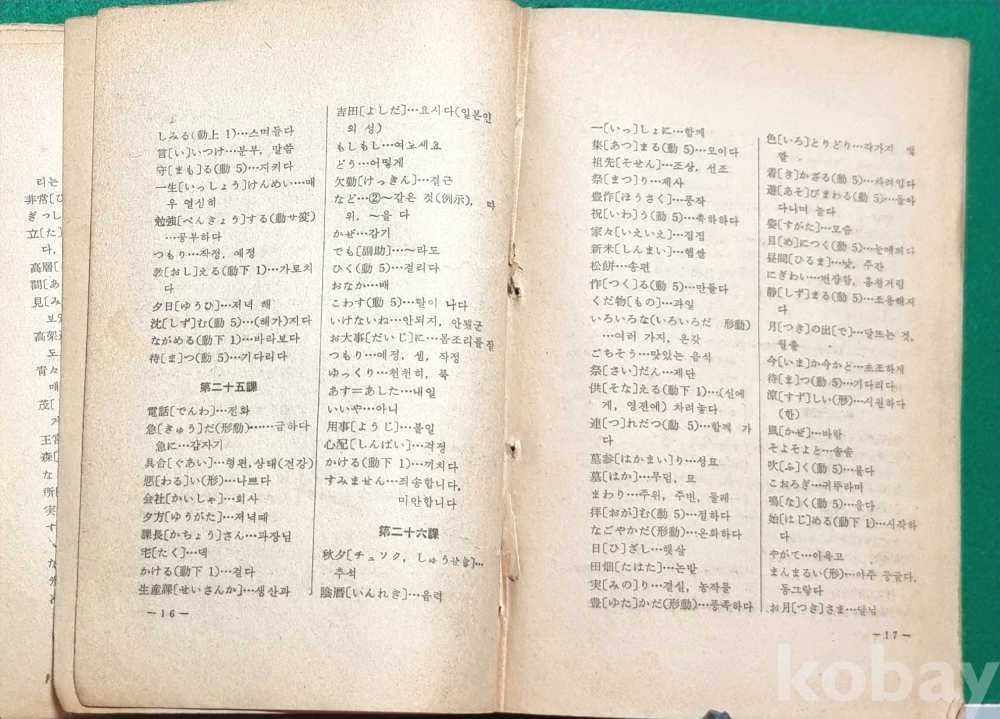 리는
非常[ひ
ぎっし
立[た]
다,
高層[
間[あ
見[み
高架
도
青々
매
茂[
王宮
森[
な
所[
実
す
しみる(動上 1)…스며들다
言[い]いつけ…분부, 말씀
守[まも]る(動 5)…지키다
一生[いっしょう]けんめい…매
우 열심히
勉強[べんきょう]する(動サ変)
…공부하다
つもり…작정, 예정
敎[おし]える(動下 1)…가르치
다
夕日[ゆうひ]…저녁 해
沈[しず]む(動 5)…(해가)지다
ながめる(動下 1)…바라보다
待[ま]つ(動 5)…기다리다
第二十五課
電話[でんわ]…전화
急[きゅう]だ(形動)……급하다
急に…갑자기
具合[ぐあい]…형편, 상태(건강)
悪[わる]い(形)…나쁘다
会社[かいしゃ]…회사
夕方[ゆうがた]…저녁때
課長[かちょう]さん…과장님
宅[たく]…댁
かける(動下 1)…걸다
生産課[せいさんか]…생산과
—16—
吉田[よしだ]…요시다(일본인
의 성)
もしもし…여보세요
どう…어떻게
欠勤[けっきん]…결근
など…②~같은 것(例示), 따
위, ~을 다
かぜ…감기
でも(副助)…~라도
ひく(動 5)…걸리다
おなか…배
こわす(動 5)…탈이 나다
いけないね…안되지, 안됐군
お大事[だいじ]に…몸조리를 잘
つもり…예정, 셈, 작정
ゆっくり…천천히, 푹
あす=あした…내일
いいや…아니
用事[ようじ]…볼일
心配[しんぱい]…걱정
かける(動下 1)…끼치다
すみません…죄송합니다,
미안합니다
第二十六課
秋夕[チュソク, しゅうせき]…
추석
陰暦[いんれき]…음력
一[いっ]しょに…함께
集[あつ]まる(動 5)…모이다
祖先[そせん]…조상, 선조
祭[まつ]り…제사
豊作[ほうさく]…풍작
祝[いわ]う(動 5)…축하하다
家々[いえいえ]…집집
新米[しんまい]…햅쌀
松餅…송편
作[つく]る(動 5)…만들다
くだ物[もの]…과일
いろいろな(いろいろだ 形動)
…여러 가지, 온갖
ごちそう…맛있는 음식
祭[さい]だん…제단
供[そな]える(動下 1)…(신에
게, 영전에) 차려놓다
連[つ]れだつ(動 5)…함께 가
다
墓参[はかまい]り…성묘
墓[はか]…무덤, 묘
まわり…주위, 주변, 둘레
拝[おが]む(動 5)…절하다
なごやかだ(形動)…온화하다
日[ひ]ざし…햇살
田畑[たはた]…논밭
実[みの]り…결실, 농작물
豊[ゆた]かだ(形動)…풍족하다
色[いろ]とりどり…각가지 빛
깔
着[き]かざる(動 5)…차려입다
遊[あそ]びまわる(動 5)…돌아
다니며 놀다
姿[すがた]…모습
目[め]につく(動 5)…눈에띄다
昼間[ひるま]…낮, 주간
にぎわい…번잡함, 흥청거림
静[しず]まる(動 5)…조용해지
다
月[つき]の出[で]…달뜨는 것,
월출
今[いま]か今かと…초조하게
待[ま]つ(動 5)…기다리다
涼[すず]しい(形)…시원하다
(한)
風[かぜ]…바람
そよそよと…솔솔
吹[ふ]く(動 5)…불다
こおろぎ…귀뚜라미
鳴[な]く(動 5)…울다
始[はじ]める(動下 1)…시작하
다
やがて…이윽고
まんまるい(形)…아주 둥글다,
둥그랗다
お月[つき]さま…달님
—17—
kobay